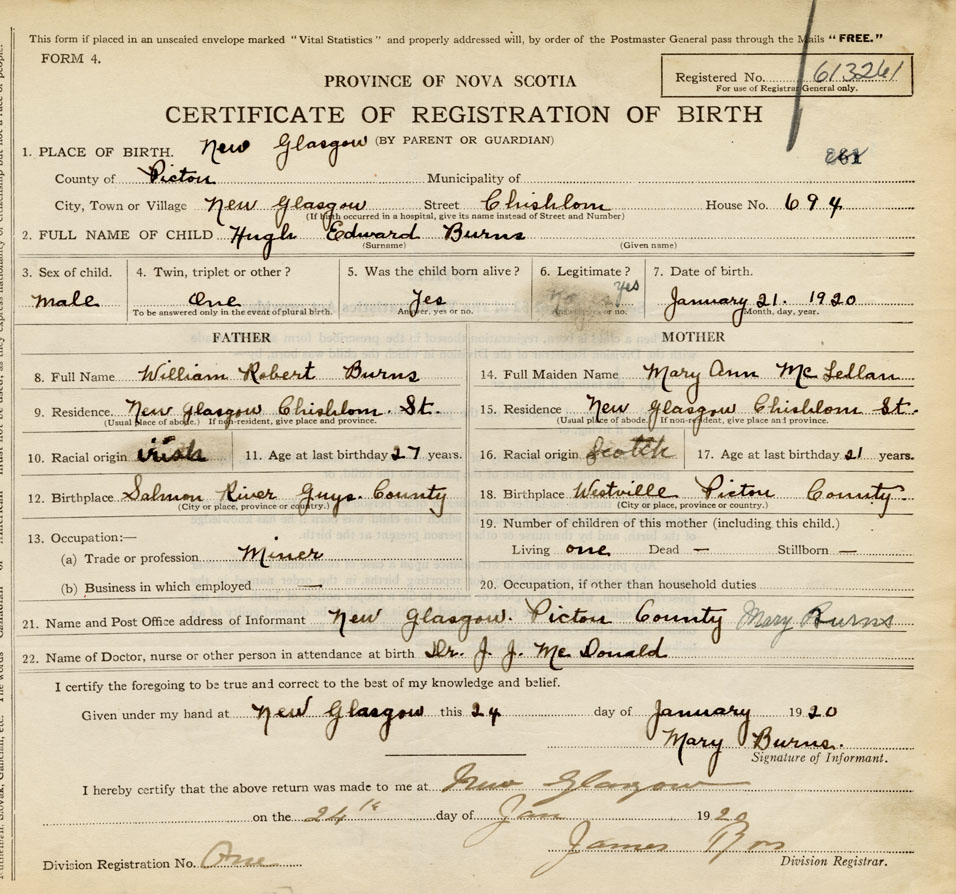 This form if placed in an unsealed envelope marked "Vital Statistics" and properly addressed will, by order of the Postmaster General pass through the Mails "FREE."
FORM 4.
Registered No. 613261
For use of Registrar General only.
PROVINCE OF NOVA SCOTIA
CERTIFICATE OF REGISTRATION OF BIRTH
(BY PARENT OR GUARDIAN)
1. PLACE OF BIRTH. New Glasgow
County of Pictou Municipality of
City, Town or Village New Glasgow Street Chishlom House No. 694
(If birth occurred in a hospital, give its name instead of Street and Number)
2. FULL NAME OF CHILD Hugh Edward Burns
(Surname) (Given name)
3. Sex of child. 4. Twin, triplet or other? 5. Was the child born alive? 6. Legitimate? 7. Date of birth.
Male One Yes yes January 21. 1920
To be answered only in the event of plural birth. Answer, yes or no. Month, day, year.
FATHER MOTHER
8. Full Name William Robert Burns 14. Full Maiden Name Mary Ann McLellan
9. Residence New Glasgow Chishlom. St. 15. Residence New Glasgow Chishlom St.
(Usual place of abode.) If non-resident, give place and province. (Usual place of abode.) If non-resident, give place and province.
10. Racial origin irish 11. Age at last birthday 27 years. 16. Racial origin Scotch 17. Age at last birthday 21 years.
12. Birthplace Salmon River Guys. County 18. Birthplace Westville Pictou County
(City or place, province or country.) (City or place, province or country.)
13. Occupation:— 19. Number of children of this mother (including this child.)
(a) Trade or profession Miner Living one Dead — Stillborn —
(b) Business in which employed — 20. Occupation, if other than household duties
21. Name and Post Office address of Informant New Glasgow. Pictou County Mary Burns
22. Name of Doctor, nurse or other person in attendance at birth Dr. J. J. McDonald
I certify the foregoing to be true and correct to the best of my knowledge and belief.
Given under my hand at New Glasgow this 24 day of January 1920
Mary Burns.
Signature of Informant.
I hereby certify that the above return was made to me at New Glasgow
on the 24th day of Jan 1920
James Ros
Division Registration No. One Division Registrar.